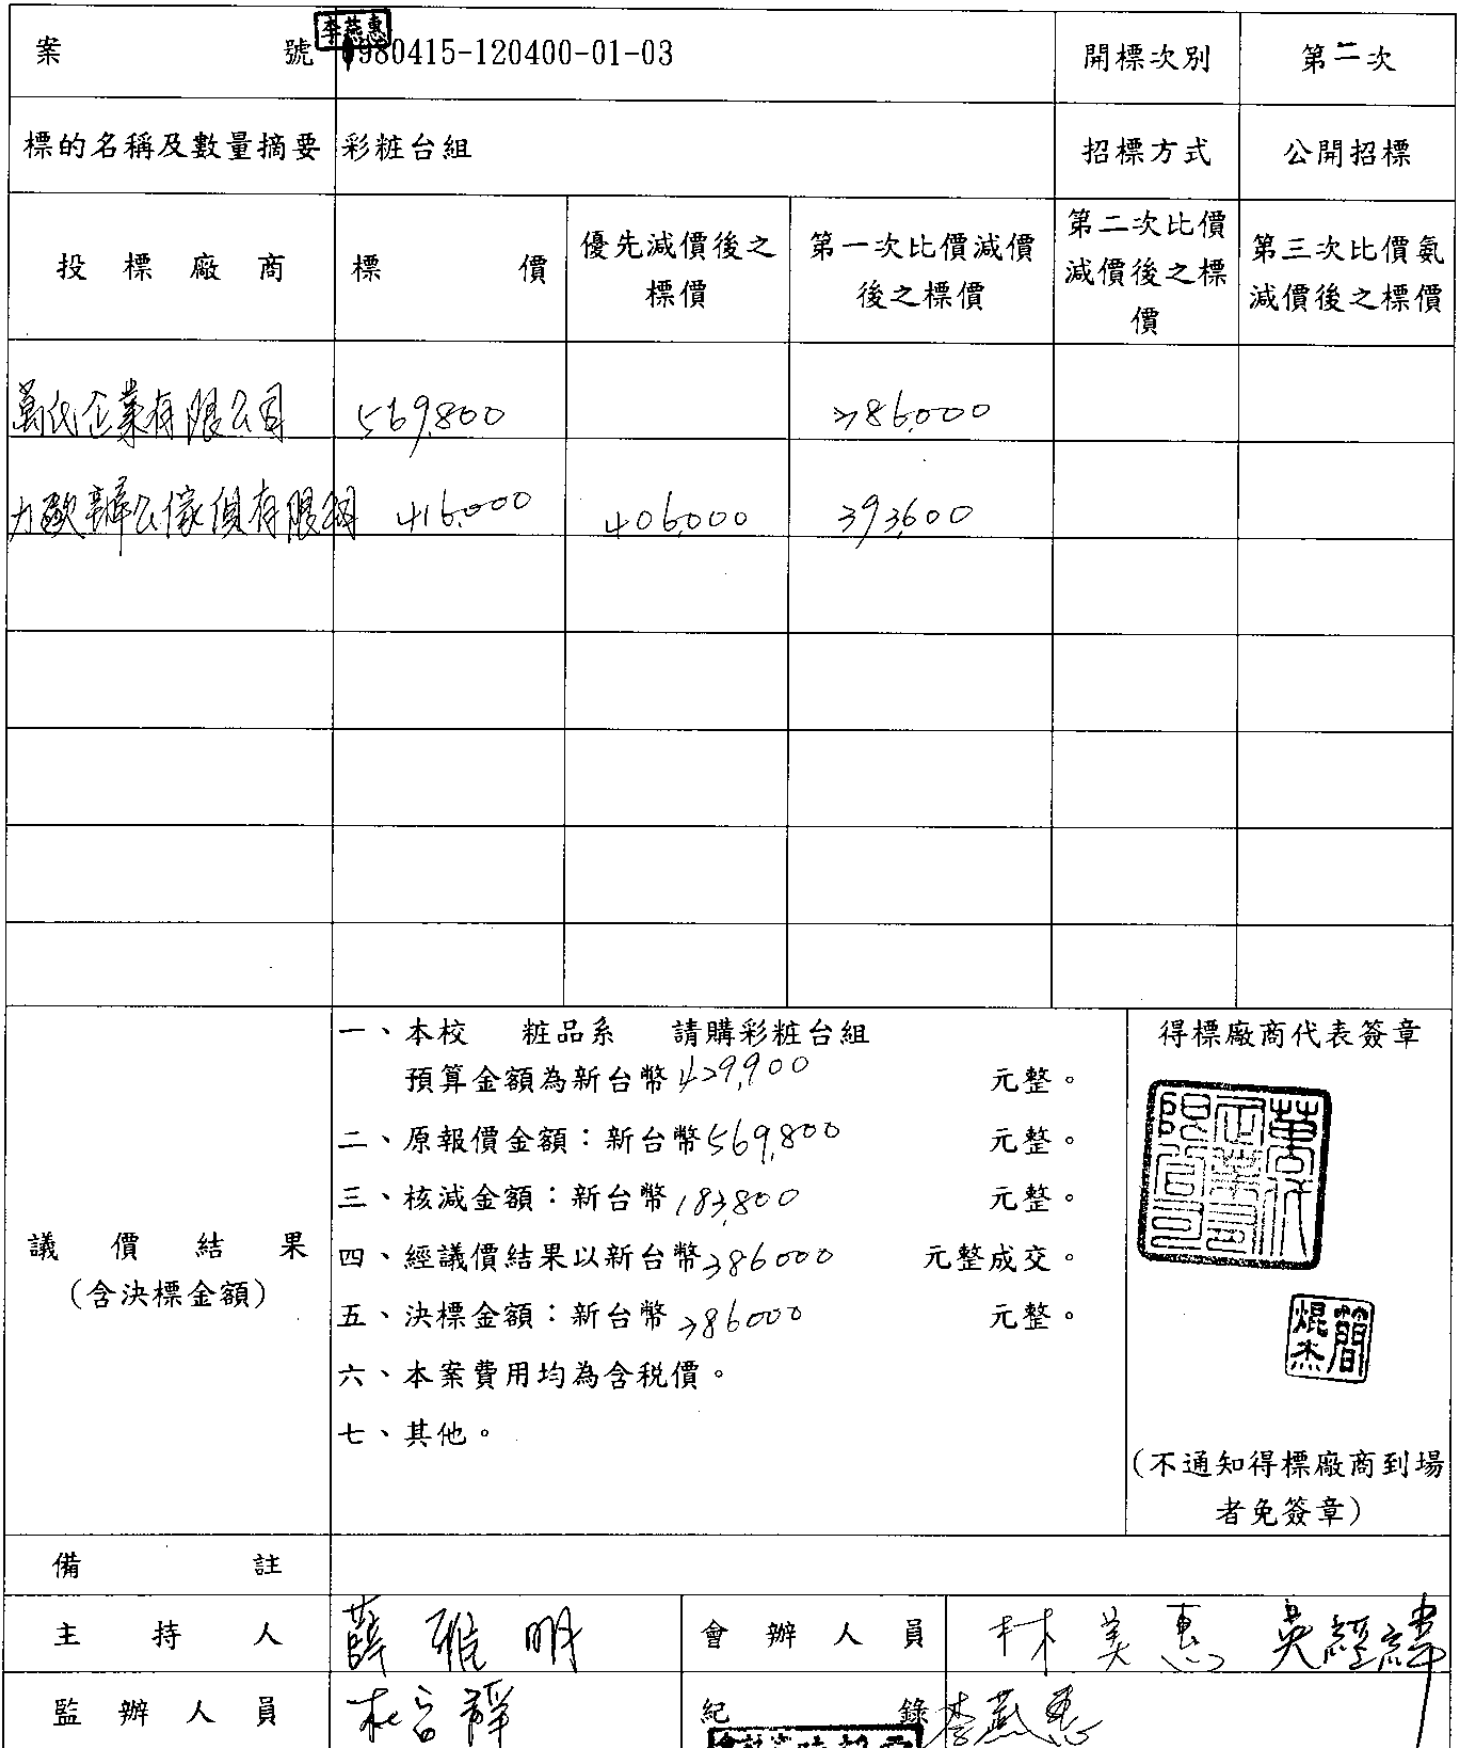 李燕惠
案 號 0980415-120400-01-03 開標次別 第二次
標的名稱及數量摘要 彩粧台組 招標方式 公開招標
投標廠商 標價 優先減價後之標價 第一次比價減價後之標價 第二次比價減價後之標價 第三次比價氨減價後之標價
萬代企業有限公司 569,800 386,000
力歐辦公傢俱有限公司 416,000 406,000 393,600
議價結果
(含決標金額)
一、本校 粧品系 請購彩粧台組
預算金額為新台幣429,900 元整。
二、原報價金額：新台幣569,800 元整。
三、核減金額：新台幣183,800 元整。
四、經議價結果以新台幣386000 元整成交。
五、決標金額：新台幣386000 元整。
六、本案費用均為含稅價。
七、其他。
得標廠商代表簽章
簡焜杰
(不通知得標廠商到場
者免簽章)
備註
主持人 薛雅明 會辦人員 林美惠
監辦人員 紀錄 李燕惠